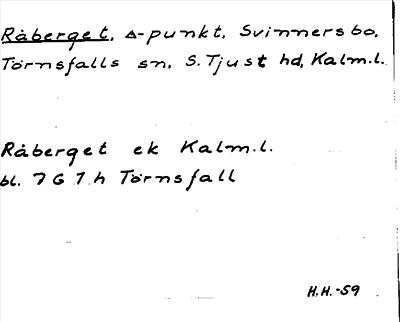 Råberget, △-punkt, Svinnersbo,
Törnsfalls sn, S.Tjust hd, Kalm.l.
Råberget ek Kalm.l.
bl. 7 G 7 h Törnsfall
H.H.-59